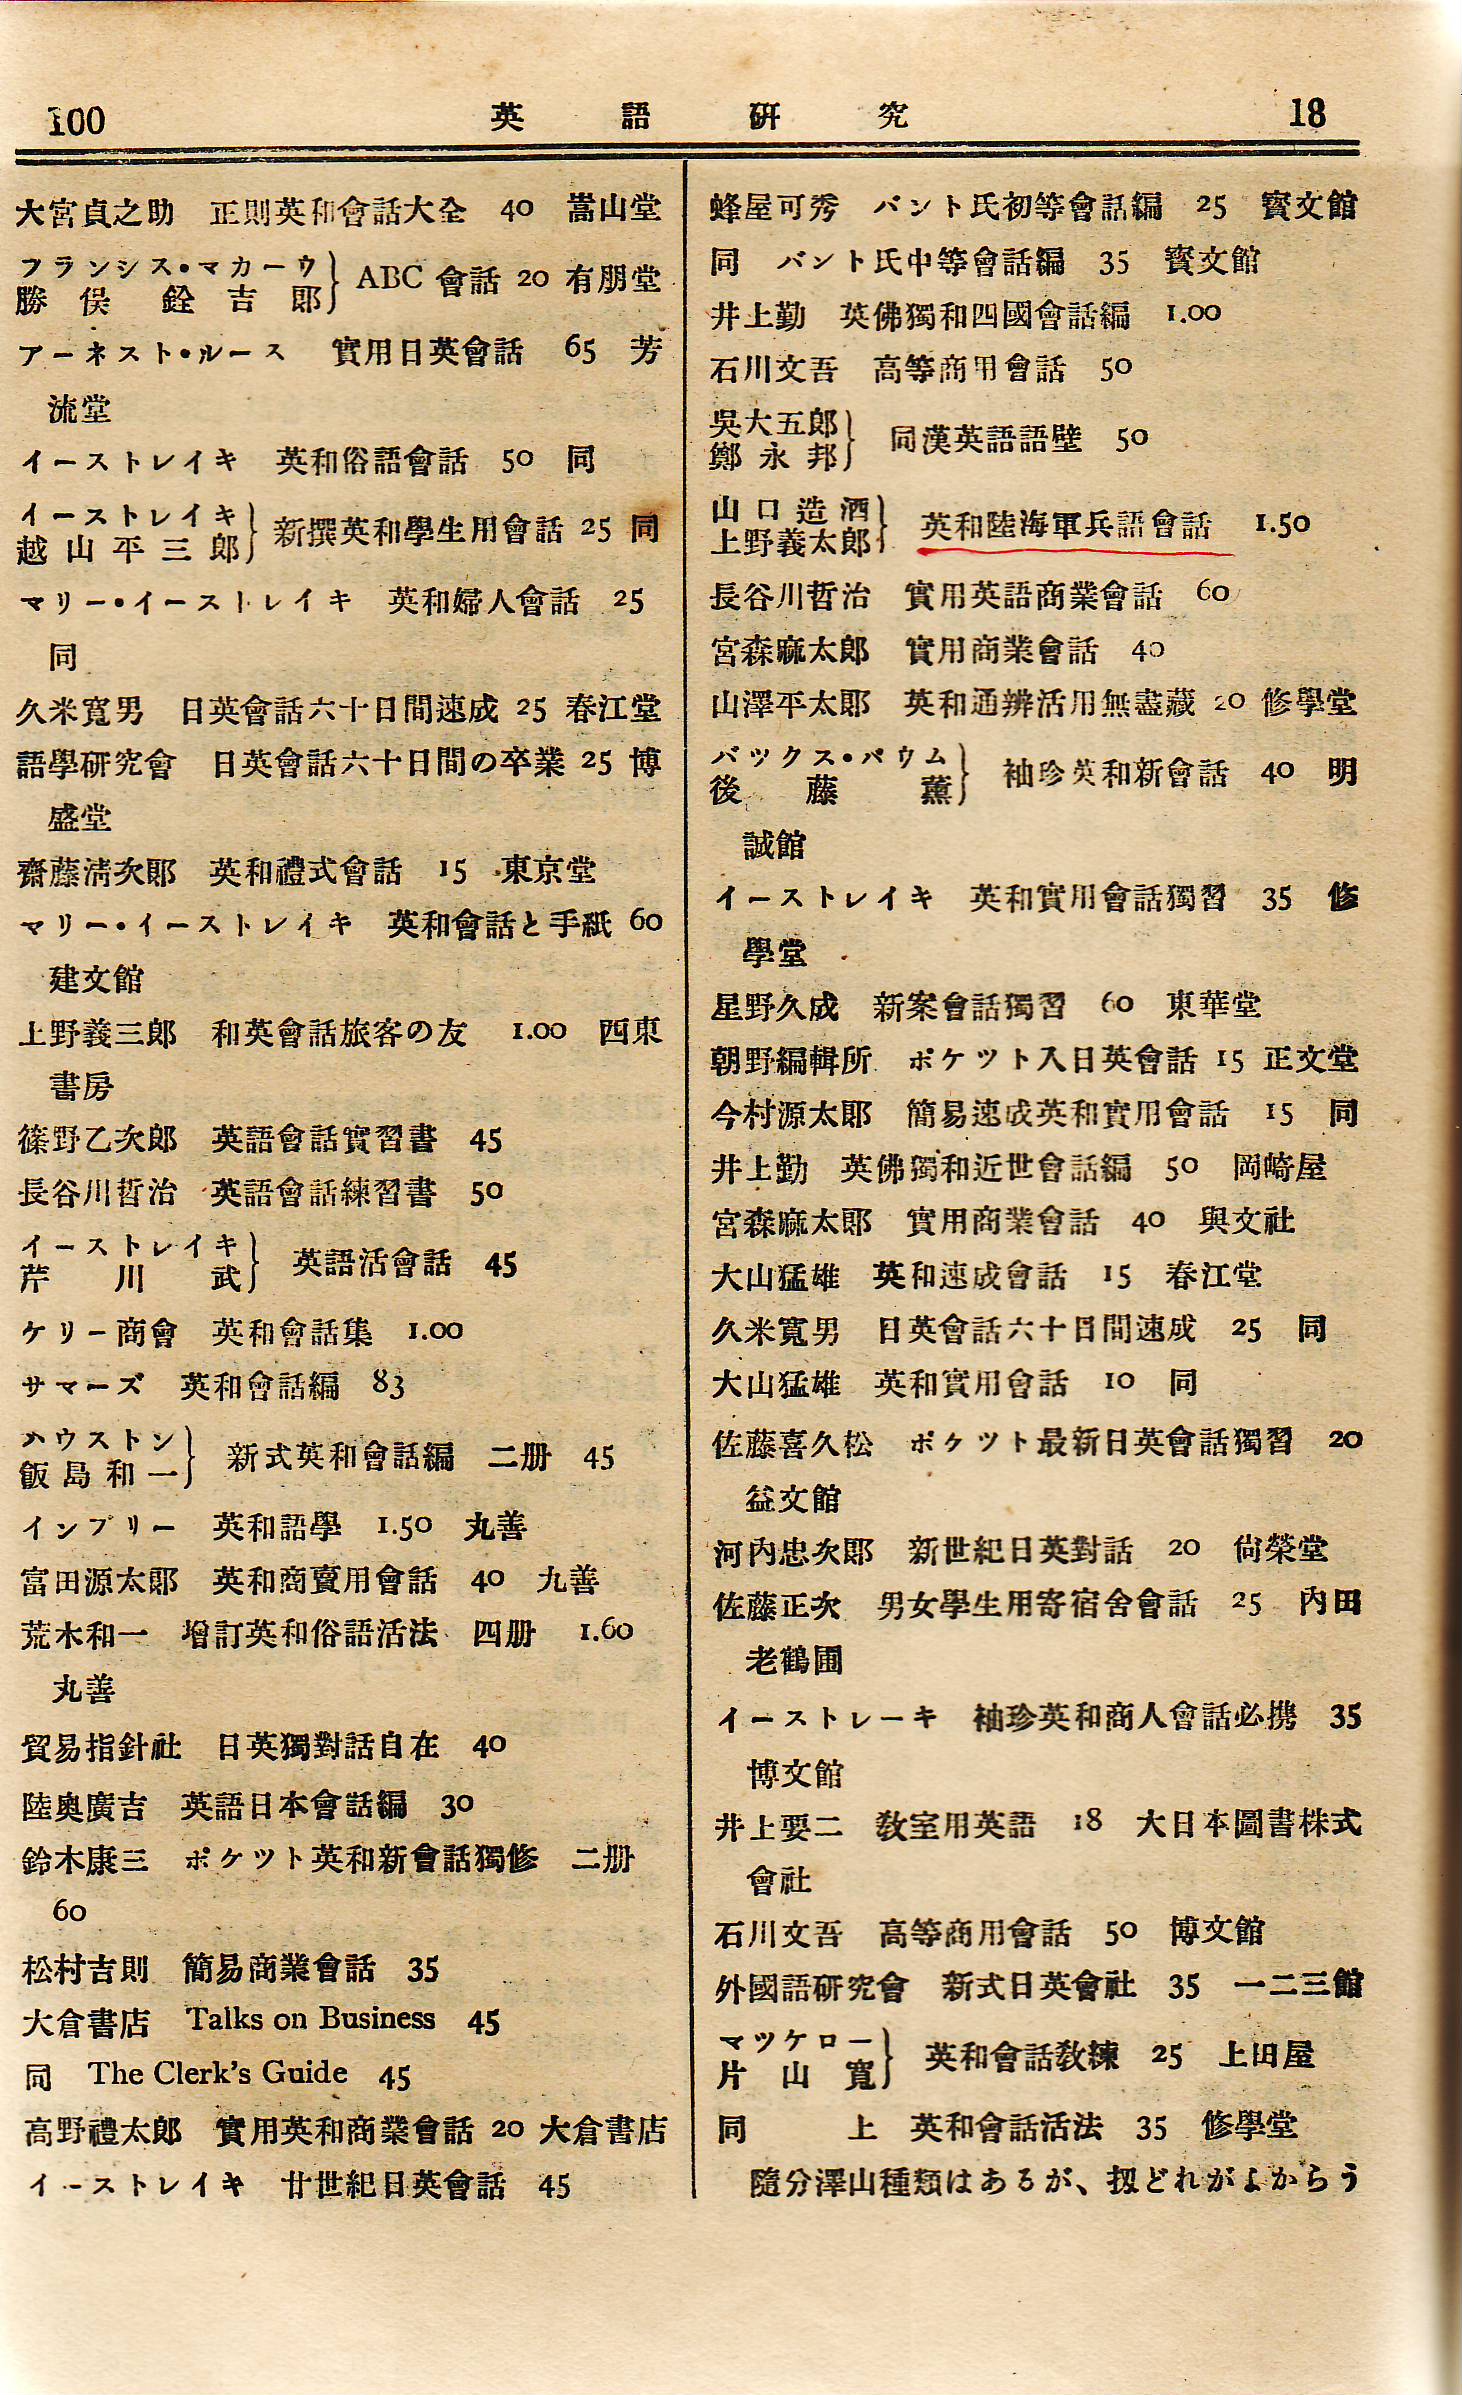 100 英語研究 18
大宮貞之助 正則英和會話大全 40 嵩山堂
フランシス・マカーウ
勝俣銓吉郎 ABC 會話 20 有朋堂
アーネスト・ルース 實用日英會話 65 芳
流堂
イーストレイキ 英和俗語會話 50 同
イーストレイキ
越山平三郎 新撰英和學生用會話 25 同
マリー・イーストレイキ 英和婦人會話 25
同
久米寬男 日英會話六十日間速成 25 春江堂
語學研究會 日英會話六十日間の卒業 25 博
盛堂
齋藤淸次郎 英和禮式會話 15 東京堂
マリー・イーストレイキ 英和會話と手紙 60
建文館
上野義三郎 和英會話旅客の友 1.00 西東
書房
篠野乙次郎 英語會話實習書 45
長谷川哲治 英語會話練習書 50
イーストレイキ
芹川武 英語活會話 45
ケリー商會 英和會話集 1.00
サマーズ 英和會話編 83
ハウストン
飯島和一 新式英和會話編 二册 45
インブリー 英和語學 1.50 丸善
富田源太郎 英和商賣用會話 40 九善
荒木和一 增訂英和俗語活法 四册 1.60
丸善
貿易指針社 日英獨對話自在 40
陸奧廣吉 英語日本會話編 30
鈴木康三 ポケツト英和新會話獨修 二册
60
松村吉則 簡易商業會話 35
大倉書店 Talks on Business 45
同 The Clerk's Guide 45
高野禮太郎 實用英和商業會話 20 大倉書店
イーストレイキ 廿世紀日英會話 45
蜂屋可秀 バント氏初等會話編 25 寳文館
同 バント氏中等會話編 35 寳文館
井上勤 英佛獨和四國會話編 1.00
石川文吾 高等商用會話 50
吳大五郎
鄭永邦 同漢英語語壁 50
山口造酒
上野義太郎 英和陸海軍兵語會話 1.50
長谷川哲治 實用英語商業會話 60
宮森麻太郎 實用商業會話 40
山澤平太郎 英和通辨活用無盡藏 20 修學堂
バツクス・パウム
後藤薰 袖珍英和新會話 40 明
誠館
イーストレイキ 英和實用會話獨習 35 修
學堂
星野久成 新案會話獨習 60 東華堂
朝野編輯所 ポケツト入日英會話 15 正文堂
今村源太郎 簡易速成英和實用會話 15 同
井上勤 英佛獨和近世會話編 50 岡崎屋
宮森麻太郎 實用商業會話 40 與文社
大山猛雄 英和速成會話 15 春江堂
久米寬男 日英會話六十日間速成 25 同
大山猛雄 英和實用會話 10 同
佐藤喜久松 ポケツト最新日英會話獨習 20
益文館
河內忠次郎 新世紀日英對話 20 尙榮堂
佐藤正次 男女學生用寄宿舍會話 25 內田
老鶴圃
イーストレーキ 袖珍英和商人會話必携 35
博文館
井上要二 敎室用英語 18 大日本圖書株式
會社
石川文吾 高等商用會話 50 博文館
外國語研究會 新式日英會社 35 一二三館
マツケロー
片山寬 英和會話敎練 25 上田屋
同上 英和會話活法 35 修學堂
隨分澤山種類はあるが、扨どれがよからう